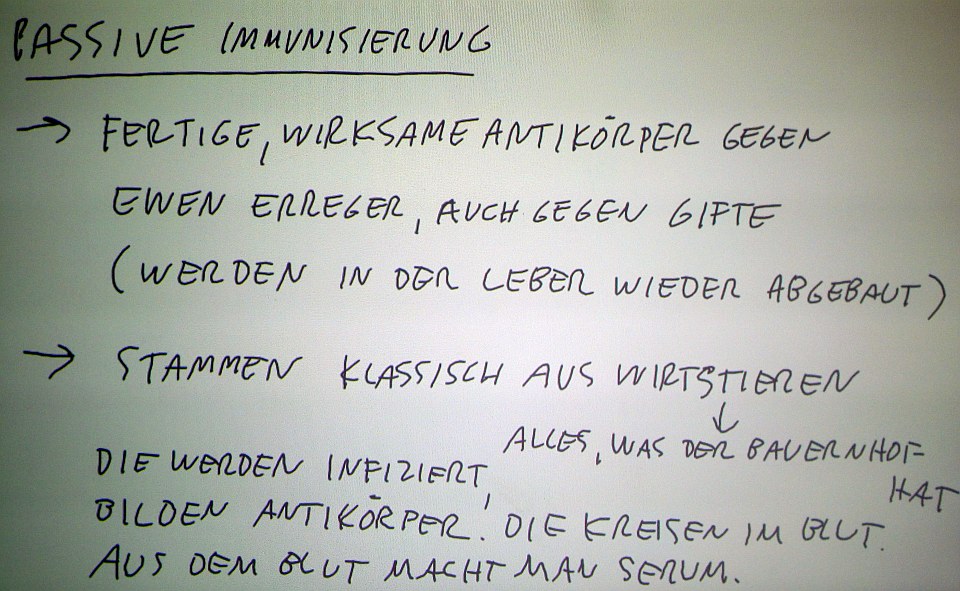 PASSIVE IMMUNISIERUNG
→ FERTIGE, WIRKSAME ANTIKÖRPER GEGEN
EINEN ERREGER, AUCH GEGEN GIFTE
(WERDEN IN DER LEBER WIEDER ABGEBAUT)
→ STAMMEN KLASSISCH AUS WIRTSTIEREN
↓
ALLES, WAS DER BAUERNHOF
HAT
DIE WERDEN INFIZIERT,
BILDEN ANTIKÖRPER. DIE KREISEN IM BLUT.
AUS DEM BLUT MACHT MAN SERUM.